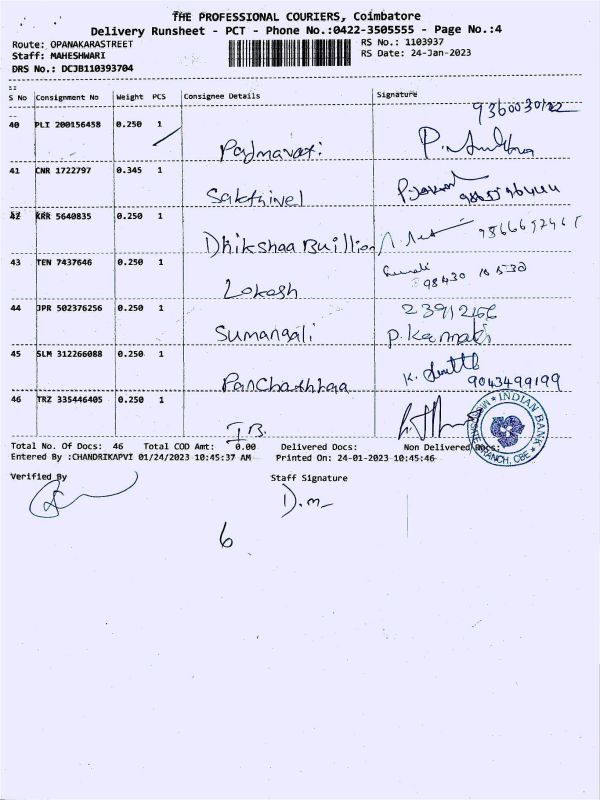 THE PROFESSIONAL COURIERS, Coimbatore
Delivery Runsheet - PCT - Phone No.:0422-3505555 - Page No.:4
Route: OPANAKARASTREET RS No.: 1103937
Staff: MAHESHWARI RS Date: 24-Jan-2023
DRS No.: DCJB110393704
S No Consignment No Weight PCS Consignee Details Signature
40 PLI 200156458 0.250 1
Padmavati
41 CNR 1722797 0.345 1
Sakthivel
42 KRR 5640835 0.250 1
Dhikshaa Buillion
43 TEN 7437646 0.250 1
Lokesh
44 JPR 502376256 0.250 1 23912166
Sumangali P. Kannaki
45 SLM 312266088 0.250 1
Panchaththaa 9043499199
46 TRZ 335446405 0.250 1
I.B. INDIAN BANK
Total No. Of Docs: 46 Total COD Amt: 0.00 Delivered Docs: Non Delivered Docs:
Entered By :CHANDRIKAPVI 01/24/2023 10:45:37 AM Printed On: 24-01-2023 10:45:46
Verified By Staff Signature
D.m
6